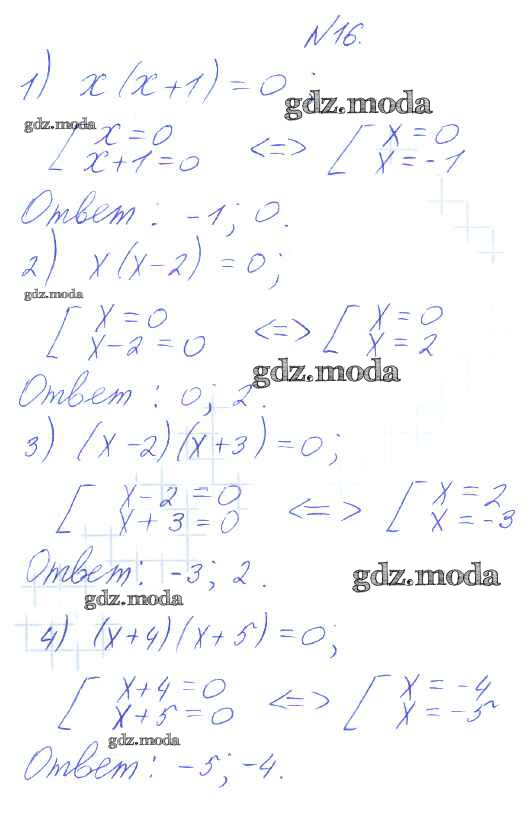 №16.
1) x(x+1)=0;
gdz.moda
gdz.moda
[ x=0 <=> [ x=0
x+1=0 x=-1
Ответ: -1; 0.
2) x(x-2)=0;
gdz.moda
[ x=0 <=> [ x=0
x-2=0 x=2
gdz.moda
Ответ: 0; 2.
3) (x-2)(x+3)=0;
[ x-2=0 <=> [ x=2
x+3=0 x=-3
Ответ: -3; 2.
gdz.moda
gdz.moda
4) (x+4)(x+5)=0;
[ x+4=0 <=> [ x=-4
x+5=0 x=-5
gdz.moda
Ответ: -5; -4.